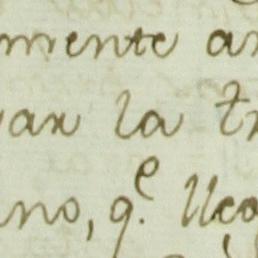 mente an
var la tr
no, q.e lleg